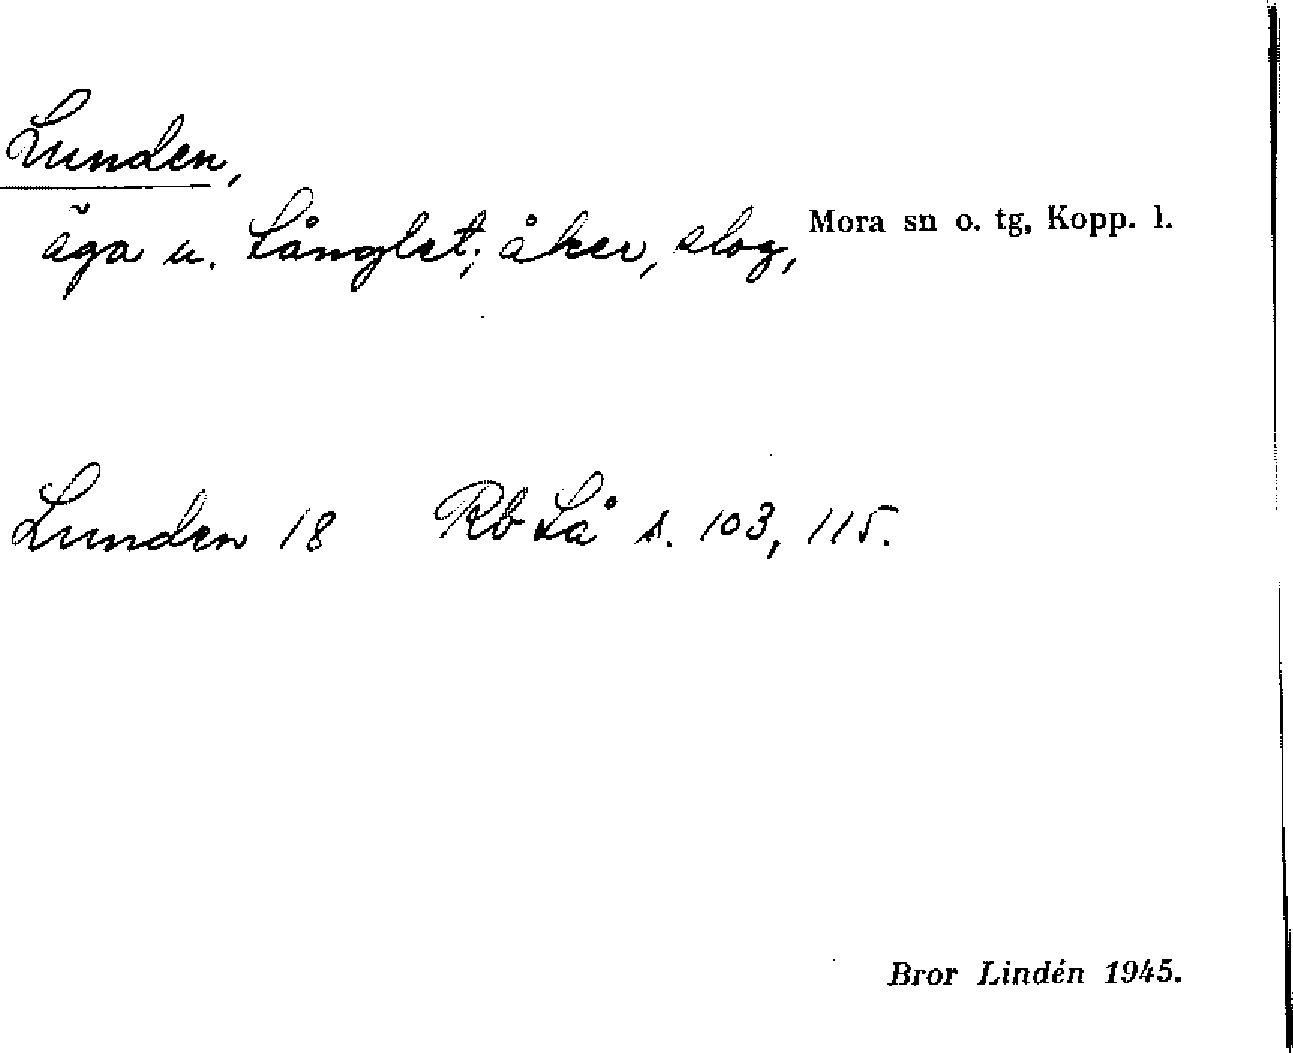 Lunden,
äga u. Långlet; åker, slog,
Mora sn o. tg, Kopp. l.
Lunden 18 Rb Lå s. 103, 115.
Bror Lindén 1945.